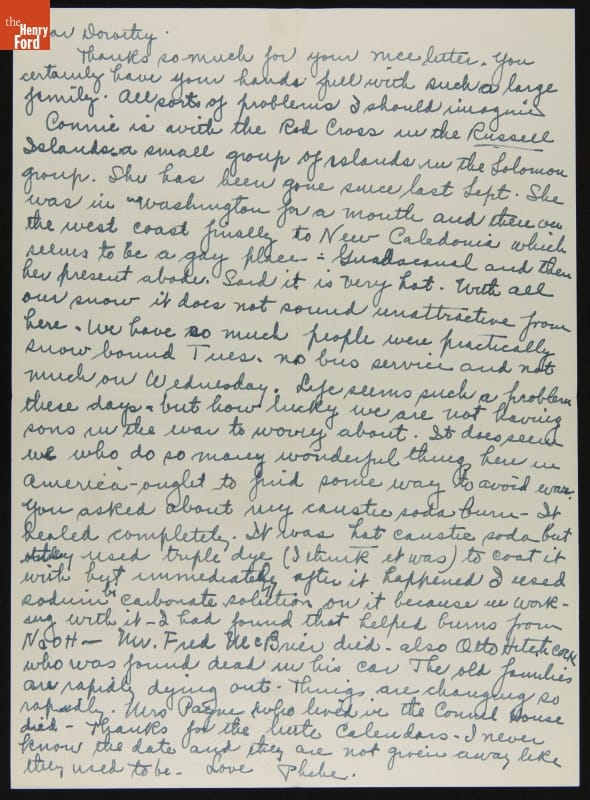 the
Henry
Ford
Dear Dorothy.
Thanks so much for your nice letter. You
certainly have your hands full with such a large
family. All sorts of problems I should imagine
Connie is with the Red Cross in the Russell
Islands a small group of islands in the Solomon
group. She has been gone since last Sept. She
was in Washington for a month and then on
the west coast finally to New Caledonia which
seems to be a gay place - Guadacanal and then
her present abode. Said it is very hot. With all
our snow it does not sound unattractive from
here. We have so much people were practically
snow bound Tues. no bus service and not
much on Wednesday. Life seems such a problem
these days - but how lucky we are not having
sons in the war to worry about. It does seem
we who do so many wonderful things here in
America - ought to find some way to avoid war.
You asked about my caustic soda burn - It
healed completely. It was hot caustic soda but
they used triple dye (I think it was) to coat it
with but immediately after it happened I used
sodium bicarbonate solution on it because in work-
ing with it - I had found that helped burns from
NaOH - Mr. Fred McBrier died - also Otto Hitchcock
who was found dead in his car The old families
are rapidly dying out. Things are changing so
rapidly. Mrs Payne who lived in the Connel House
died - Thanks for the little Calendars - I never
know the date and they are not given away like
they used to be - Love Phebe.